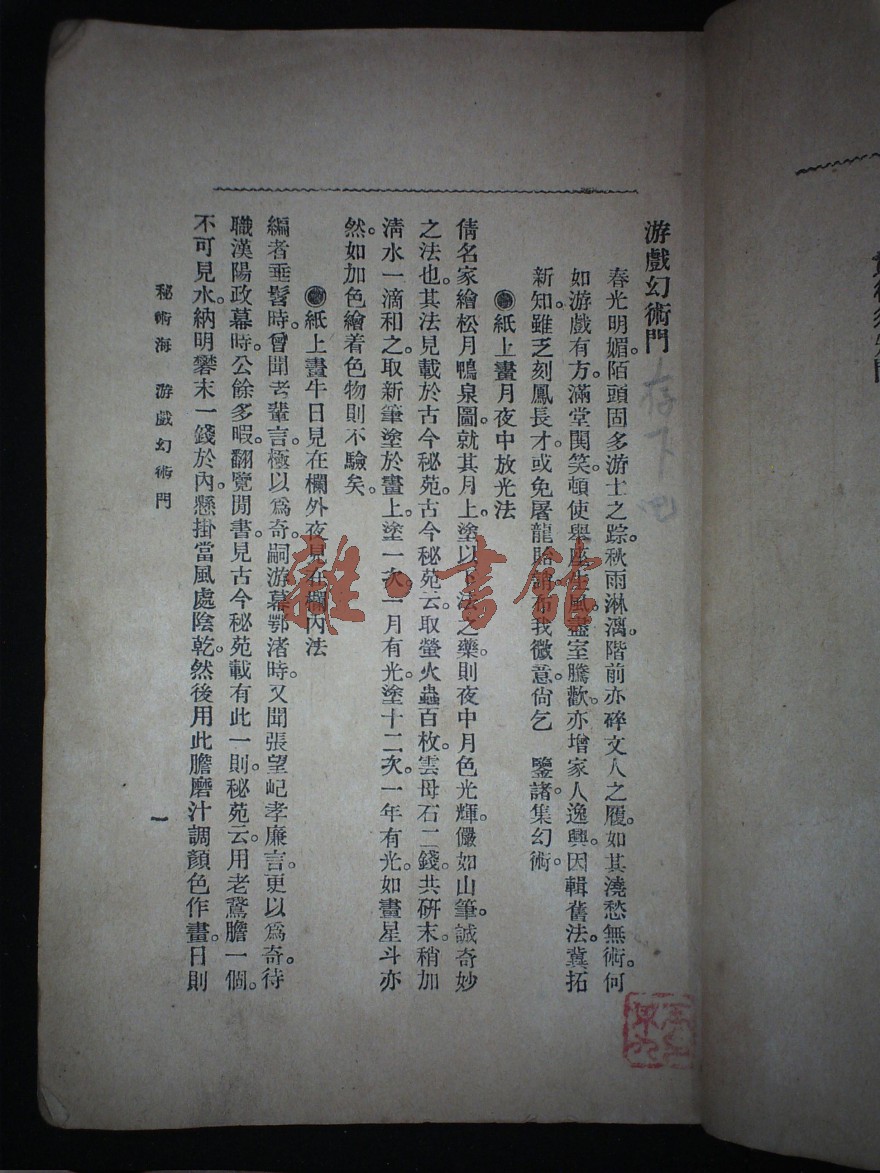 游戲幻術門
春光明媚。陌頭固多游士之踪。秋雨淋漓。階前亦碎文人之履。如其澆愁無術。何
如游戲有方。滿堂関笑。頓使舉座生風。盡室騰歡。亦增家人逸興。因輯舊法。冀拓
新知。雖乏刻鳳長才。或免屠龍貽誚。布我微意。尙乞 鑒諸。集幻術。
紙上畫月夜中放光法
倩名家繪松月鴨泉圖。就其月上。塗以下法之藥。則夜中月色光輝。儼如山筆。誠奇妙
之法也。其法見載於古今秘苑。古今秘苑云。取螢火蟲百枚。雲母石二錢。共硏末。稍加
淸水一滴和之。取新筆塗於畫上。塗一次。一月有光。塗十二次。一年有光。如畫星斗亦
然。如加色繪着色物則不驗矣。
紙上畫牛日見在欄外夜見在欄內法
編者垂髫時。曾聞老輩言。極以爲奇。嗣游幕鄂渚時。又聞張望屺孝廉言。更以爲奇。待
職漢陽政幕時。公餘多暇。翻覽閒書。見古今秘苑載有此一則。秘苑云。用老鵞膽一個。
不可見水。納明礬末一錢於內。懸掛當風處陰乾。然後用此膽磨汁調顏色作畫。日則
秘術海 游戲幻術門
一
存下
雜·書館